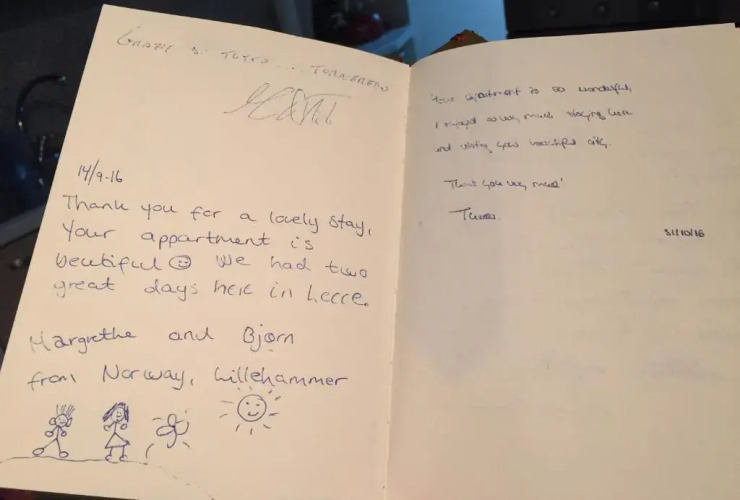 GRAZIE DI TUTTO... TORNEREMO
14/9-16
Thank you for a lovely stay,
Your appartment is
beutiful ☺ We had two
great days here in Lecce.
Margrethe and Bjørn
from Norway, Lillehammer
Your apartment is so wonderful,
I enjoyed so very much staying here
and visiting your beautiful city.
Thank you very much!
31/10/16